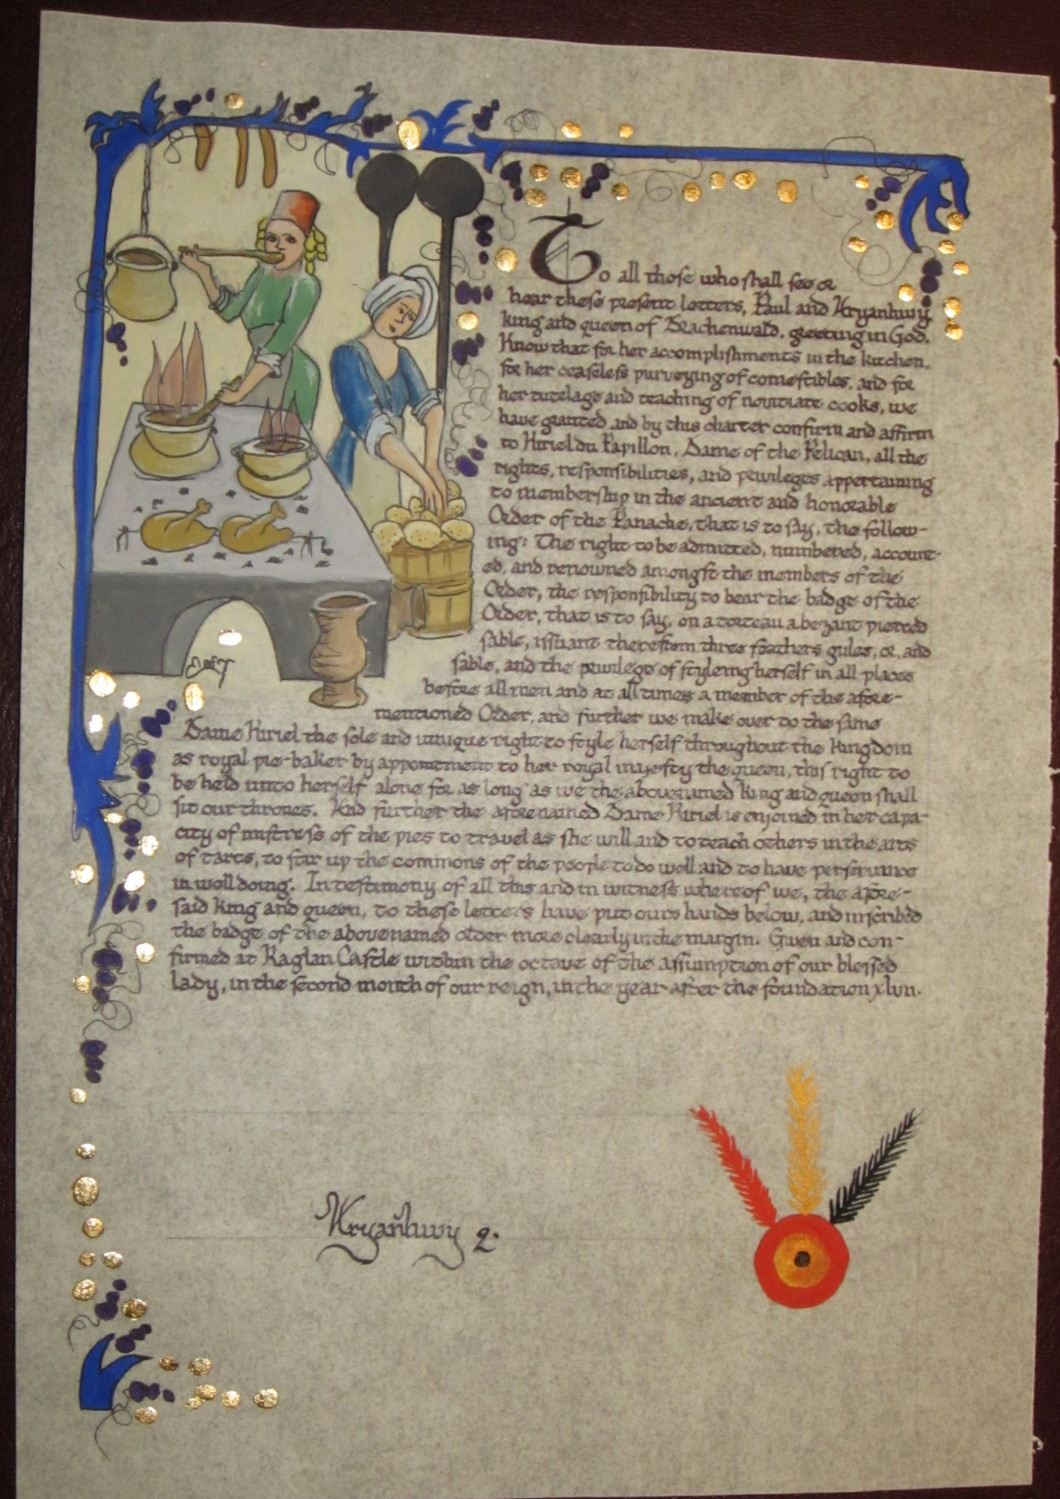 To all those who shall see or
hear these present letters, Paul and Aryanhwy,
king and queen of Drachenwald, greeting in God.
Know that for her accomplishments in the kitchen,
for her ceaseless purveying of comestibles, and for
her tutelage and teaching of novitiate cooks, we
have granted and by this charter confirm and affirm
to Kiriel du Papillon, Dame of the Pelican, all the
rights, responsibilities, and privileges appertaining
to membership in the ancient and honorable
Order of the Panache, that is to say, the follow-
ing: The right to be admitted, numbered, account-
ed, and renowned amongst the members of the
Order, the responsibility to bear the badge of the
Order, that is to say, on a torteau a bezant pierced
sable, issuant therefrom three feathers gules, or, and
sable, and the privilege of styleing herself in all places
before all men and at all times a member of the afore-
mentioned Order, and further we make over to the same
Dame Kiriel the sole and unique right to style herself throughout the kingdom
as royal pie-baker by appointment to her royal majesty the queen, this right to
be held unto herself alone for as long as we the abovenamed king and queen shall
sit our thrones. And further the aforenamed Dame Kiriel is enjoined in her capa-
city of mistress of the pies to travel as she will and to teach others in the arts
of tarts, to stir up the commons of the people to do well and to have
in well doing. In testimony of all this and in witness whereof we, the afore-
said king and queen, to these letters have put ours hands below, and inscribed
the badge of the abovenamed order more clearly in the margin. Given and con-
firmed at Raglan Castle within the octave of the assumption of our blessed
lady, in the second month of our reign, in the year after the foundation xlvii.
Aryanhwy